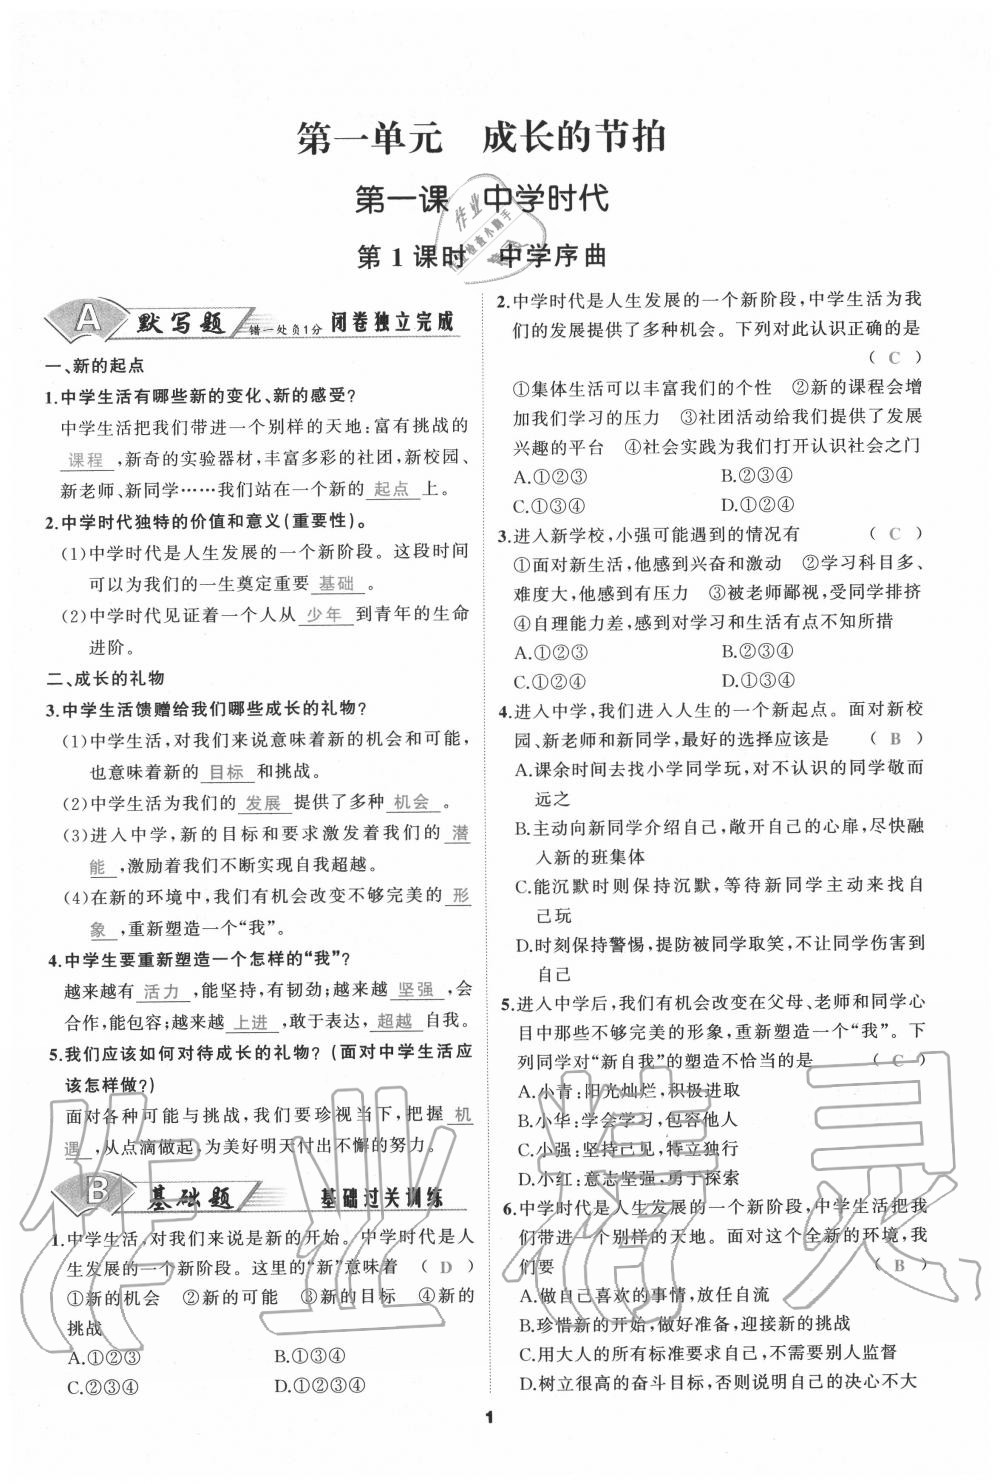 第一单元　成长的节拍
第一课　中学时代
第1课时　中学序曲
A 默写题 错一处负1分 闭卷独立完成
一、新的起点
1.中学生活有哪些新的变化、新的感受?
中学生活把我们带进一个别样的天地:富有挑战的
课程,新奇的实验器材,丰富多彩的社团,新校园、
新老师、新同学……我们站在一个新的 起点 上。
2.中学时代独特的价值和意义(重要性)。
(1)中学时代是人生发展的一个新阶段。这段时间
可以为我们的一生奠定重要 基础 。
(2)中学时代见证着一个人从 少年 到青年的生命
进阶。
二、成长的礼物
3.中学生活馈赠给我们哪些成长的礼物?
(1)中学生活,对我们来说意味着新的机会和可能,
也意味着新的 目标 和挑战。
(2)中学生活为我们的 发展 提供了多种 机会 。
(3)进入中学,新的目标和要求激发着我们的 潜
能 ,激励着我们不断实现自我超越。
(4)在新的环境中,我们有机会改变不够完美的 形
象 ,重新塑造一个“我”。
4.中学生要重新塑造一个怎样的“我”?
越来越有 活力 ,能坚持,有韧劲;越来越 坚强 ,会
合作,能包容;越来越 上进 ,敢于表达, 超越 自我。
5.我们应该如何对待成长的礼物?(面对中学生活应
该怎样做?)
面对各种可能与挑战,我们要珍视当下,把握 机
遇 ,从点滴做起,为美好明天付出不懈的努力。
B 基础题 基础过关训练
1.中学生活,对我们来说是新的开始。中学时代是人
生发展的一个新阶段。这里的“新”意味着 ( D )
①新的机会　②新的可能　③新的目标　④新的
挑战
A.①②③　B.①③④
C.②③④　D.①②③④
2.中学时代是人生发展的一个新阶段,中学生活为我
们的发展提供了多种机会。下列对此认识正确的是
( C )
①集体生活可以丰富我们的个性　②新的课程会增
加我们学习的压力　③社团活动给我们提供了发展
兴趣的平台　④社会实践为我们打开认识社会之门
A.①②③　B.②③④
C.①③④　D.①②④
3.进入新学校,小强可能遇到的情况有 ( C )
①面对新生活,他感到兴奋和激动　②学习科目多、
难度大,他感到有压力　③被老师鄙视,受同学排挤
④自理能力差,感到对学习和生活有点不知所措
A.①②③　B.②③④
C.①②④　D.①③④
4.进入中学,我们进入人生的一个新起点。面对新校
园、新老师和新同学,最好的选择应该是 ( B )
A.课余时间去找小学同学玩,对不认识的同学敬而
远之
B.主动向新同学介绍自己,敞开自己的心扉,尽快融
入新的班集体
C.能沉默时则保持沉默,等待新同学主动来找自
己玩
D.时刻保持警惕,提防被同学取笑,不让同学伤害到
自己
5.进入中学后,我们有机会改变在父母、老师和同学心
目中那些不够完美的形象,重新塑造一个“我”。下
列同学对“新自我”的塑造不恰当的是 ( C )
A.小青:阳光灿烂,积极进取
B.小华:学会学习,包容他人
C.小强:坚持己见,特立独行
D.小红:意志坚强,勇于探索
6.中学时代是人生发展的一个新阶段,中学生活把我
们带进一个别样的天地。面对这个全新的环境,我
们要 ( B )
A.做自己喜欢的事情,放任自流
B.珍惜新的开始,做好准备,迎接新的挑战
C.用大人的所有标准要求自己,不要别人监督
D.树立很高的奋斗目标,否则说明自己的决心不大
1
作业精灵